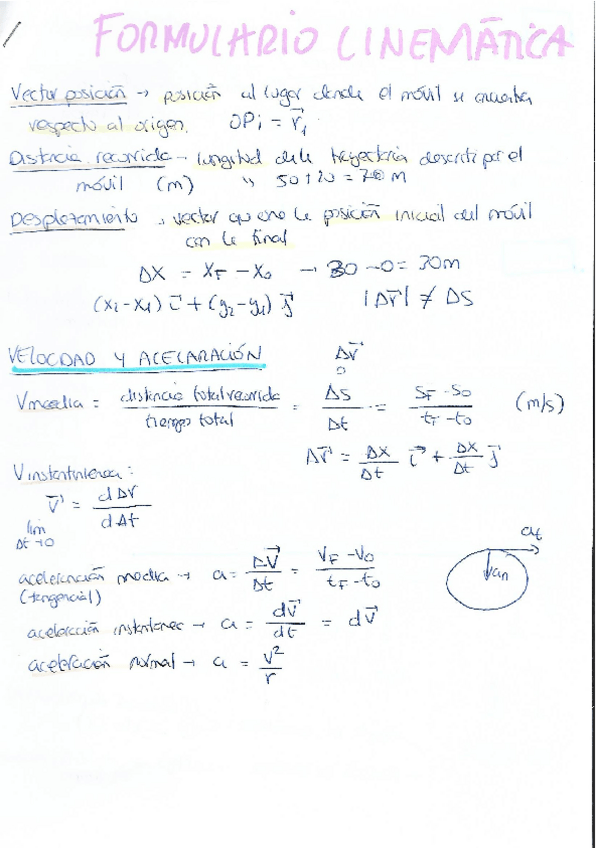 FORMULARIO CINEMÁTICA
Vector posición → posición al lugar donde el móvil se encuentra
respecto al origen. OPi = r⃗₁
Distancia recorrida – longitud de la trayectoria descrita por el
móvil (m) 50+20 = 70 m
Desplazamiento vector que une la posición inicial del móvil
con la final
ΔX = X_F − X_0 → 30 − 0 = 30m
(x₂−x₁) i⃗ + (y₂−y₁) j⃗ |Δr⃗| ≠ ΔS
VELOCDAD Y ACELARACIÓN
Δr⃗
o
Vmedia = distancia total recorrida / tiempo total = ΔS / Δt = (S_F − S_0) / (t_F − t_0) (m/s)
Δr⃗ = ΔX/Δt i⃗ + ΔX/Δt j⃗
V instantánea:
v⃗ = dΔr / dΔt
lim
Δt→0
aceleración media → a = ΔV⃗ / Δt = (V_F − V_0) / (t_F − t_0)
(tangencial)
at
an
aceleración instantánea → a = dv⃗ / dt = dv⃗
aceleración normal → a = v² / r